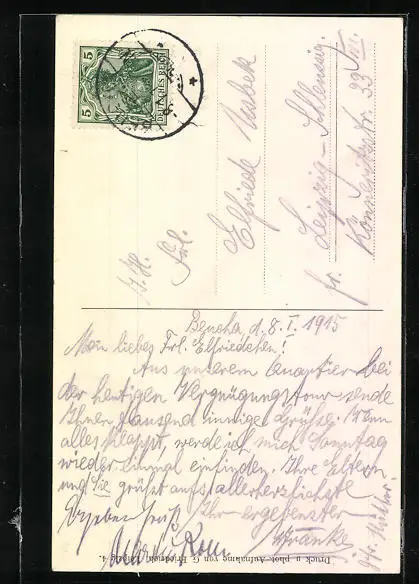 5 5
DEUTSCHES REICH
I. H.
Frl.
Elfriede
Leipzig-Schleussig.
fr. Könneritzstr. 33 III.
d. 8. I. 1915
Mein liebes Frl. Elfriedchen!
Aus unserem bei
der heutigen Vergnügungstour sende
Ihnen tausend innige Grüsse. Wenn
alles klappt, werde ich mich Sonntag
wieder einmal einfinden. Ihre Eltern
und Sie grüsst aufs allerherzlichste
Ihr ergebenster
Druck u. phot. Aufnahme von G. Friedrich, Leipzig 4.